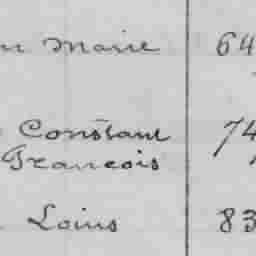 Marie 64
Constant 74
Francois
Louis 83